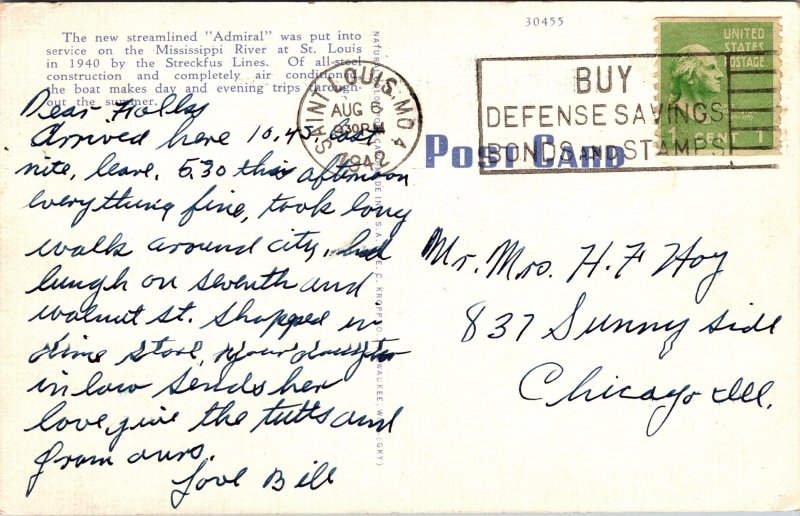 The new streamlined "Admiral" was put into
service on the Mississippi River at St. Louis
in 1940 by the Streckfus Lines. Of all-steel
construction and completely air conditioned,
the boat makes day and evening trips through-
out the summer.
30455
UNITED
STATES
POSTAGE
1 CENT 1
SAINT LOUIS, MO. 4
AUG 6
1942
BUY
DEFENSE SAVINGS
BONDS AND STAMPS
POST CARD
Dear Folks
Arrived here 10.45 last
nite, leave. 5.30 this afternoon
everything fine, took long
walk around city, had
lungh on seventh and
walnut st. Shopped in
dime store, your daughter
in law sends her
love, give the tutts and
from ours.
Love Bill
Mr. Mrs. H. F Hoy
837 Sunny side
Chicago Ill.
E. C. KROPP CO., MILWAUKEE, WIS. (GKY)